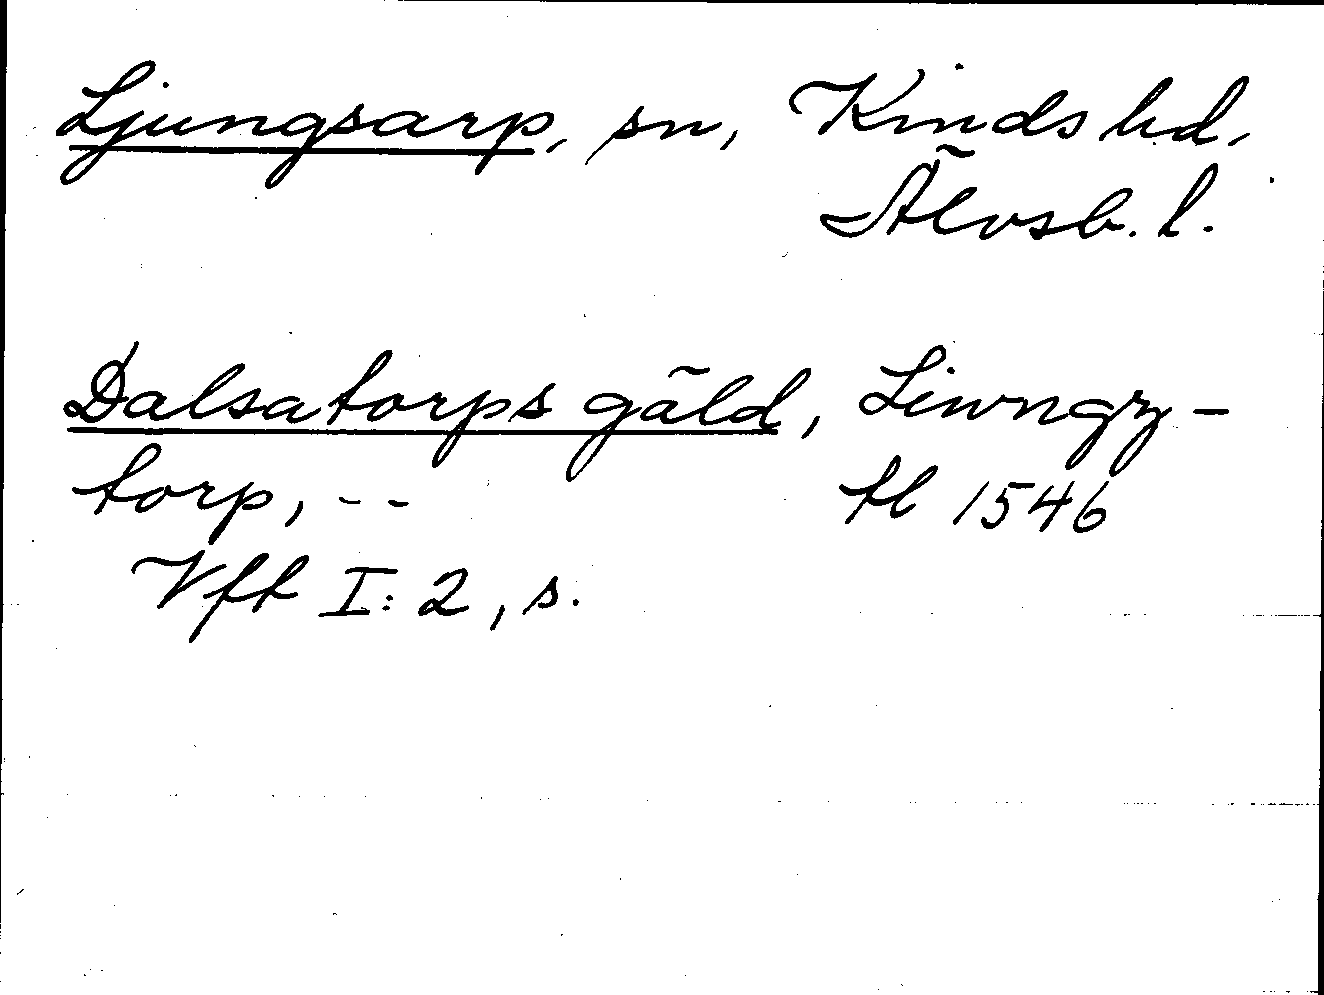 Ljungsarp, sn, Kinds hd,
Älvsb. l.
Dalsatorps gäld, Liwngz-
torp, -- tl 1546
Vft I:2, s.